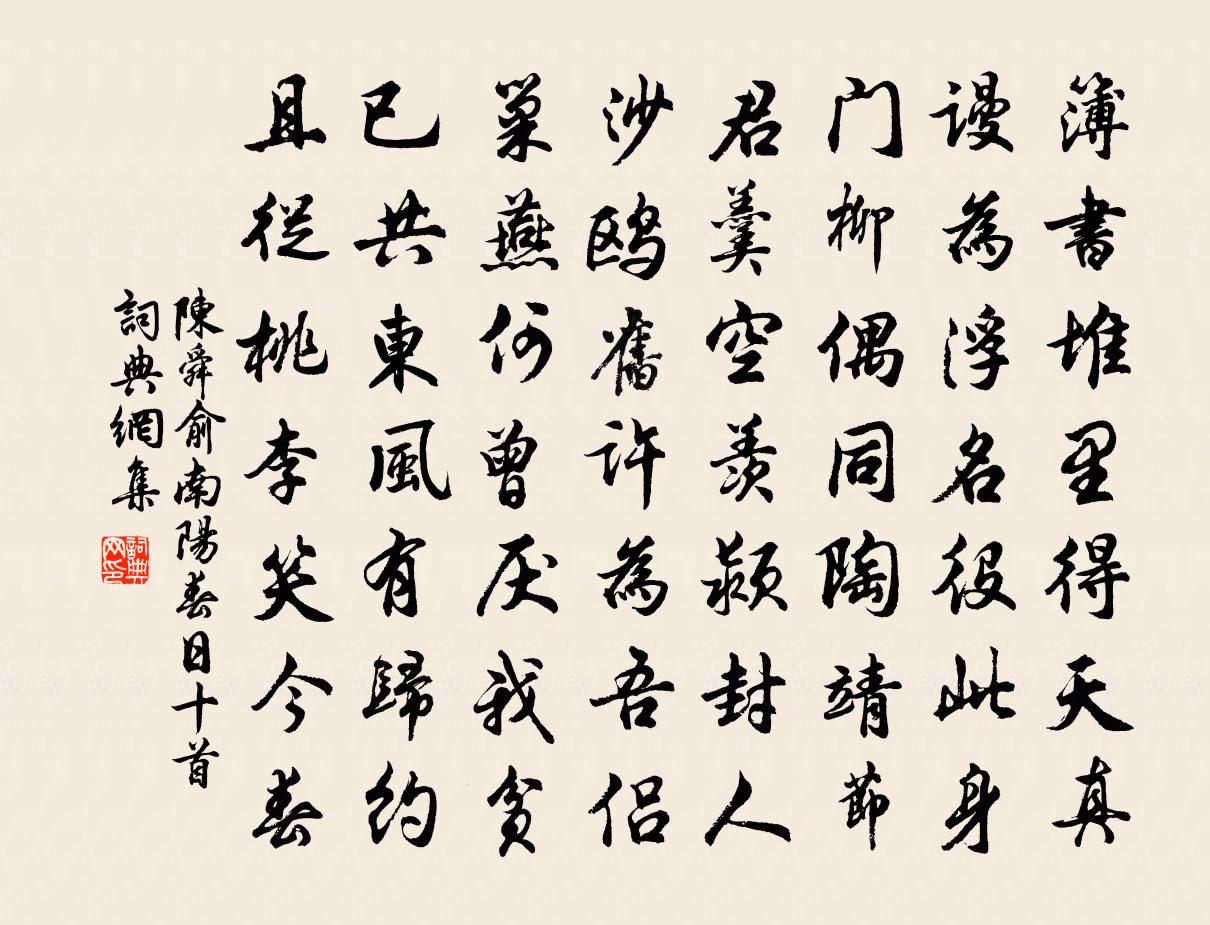 簿書堆里得天真
謾為浮名役此身
門柳偶同陶靖節
君羹空羨潁封人
沙鷗舊許為吾侶
巢燕何曾厌我貧
已共東風有歸約
且從桃李笑今春
陳舜俞南陽春日十首
詞典網集
詞典网印